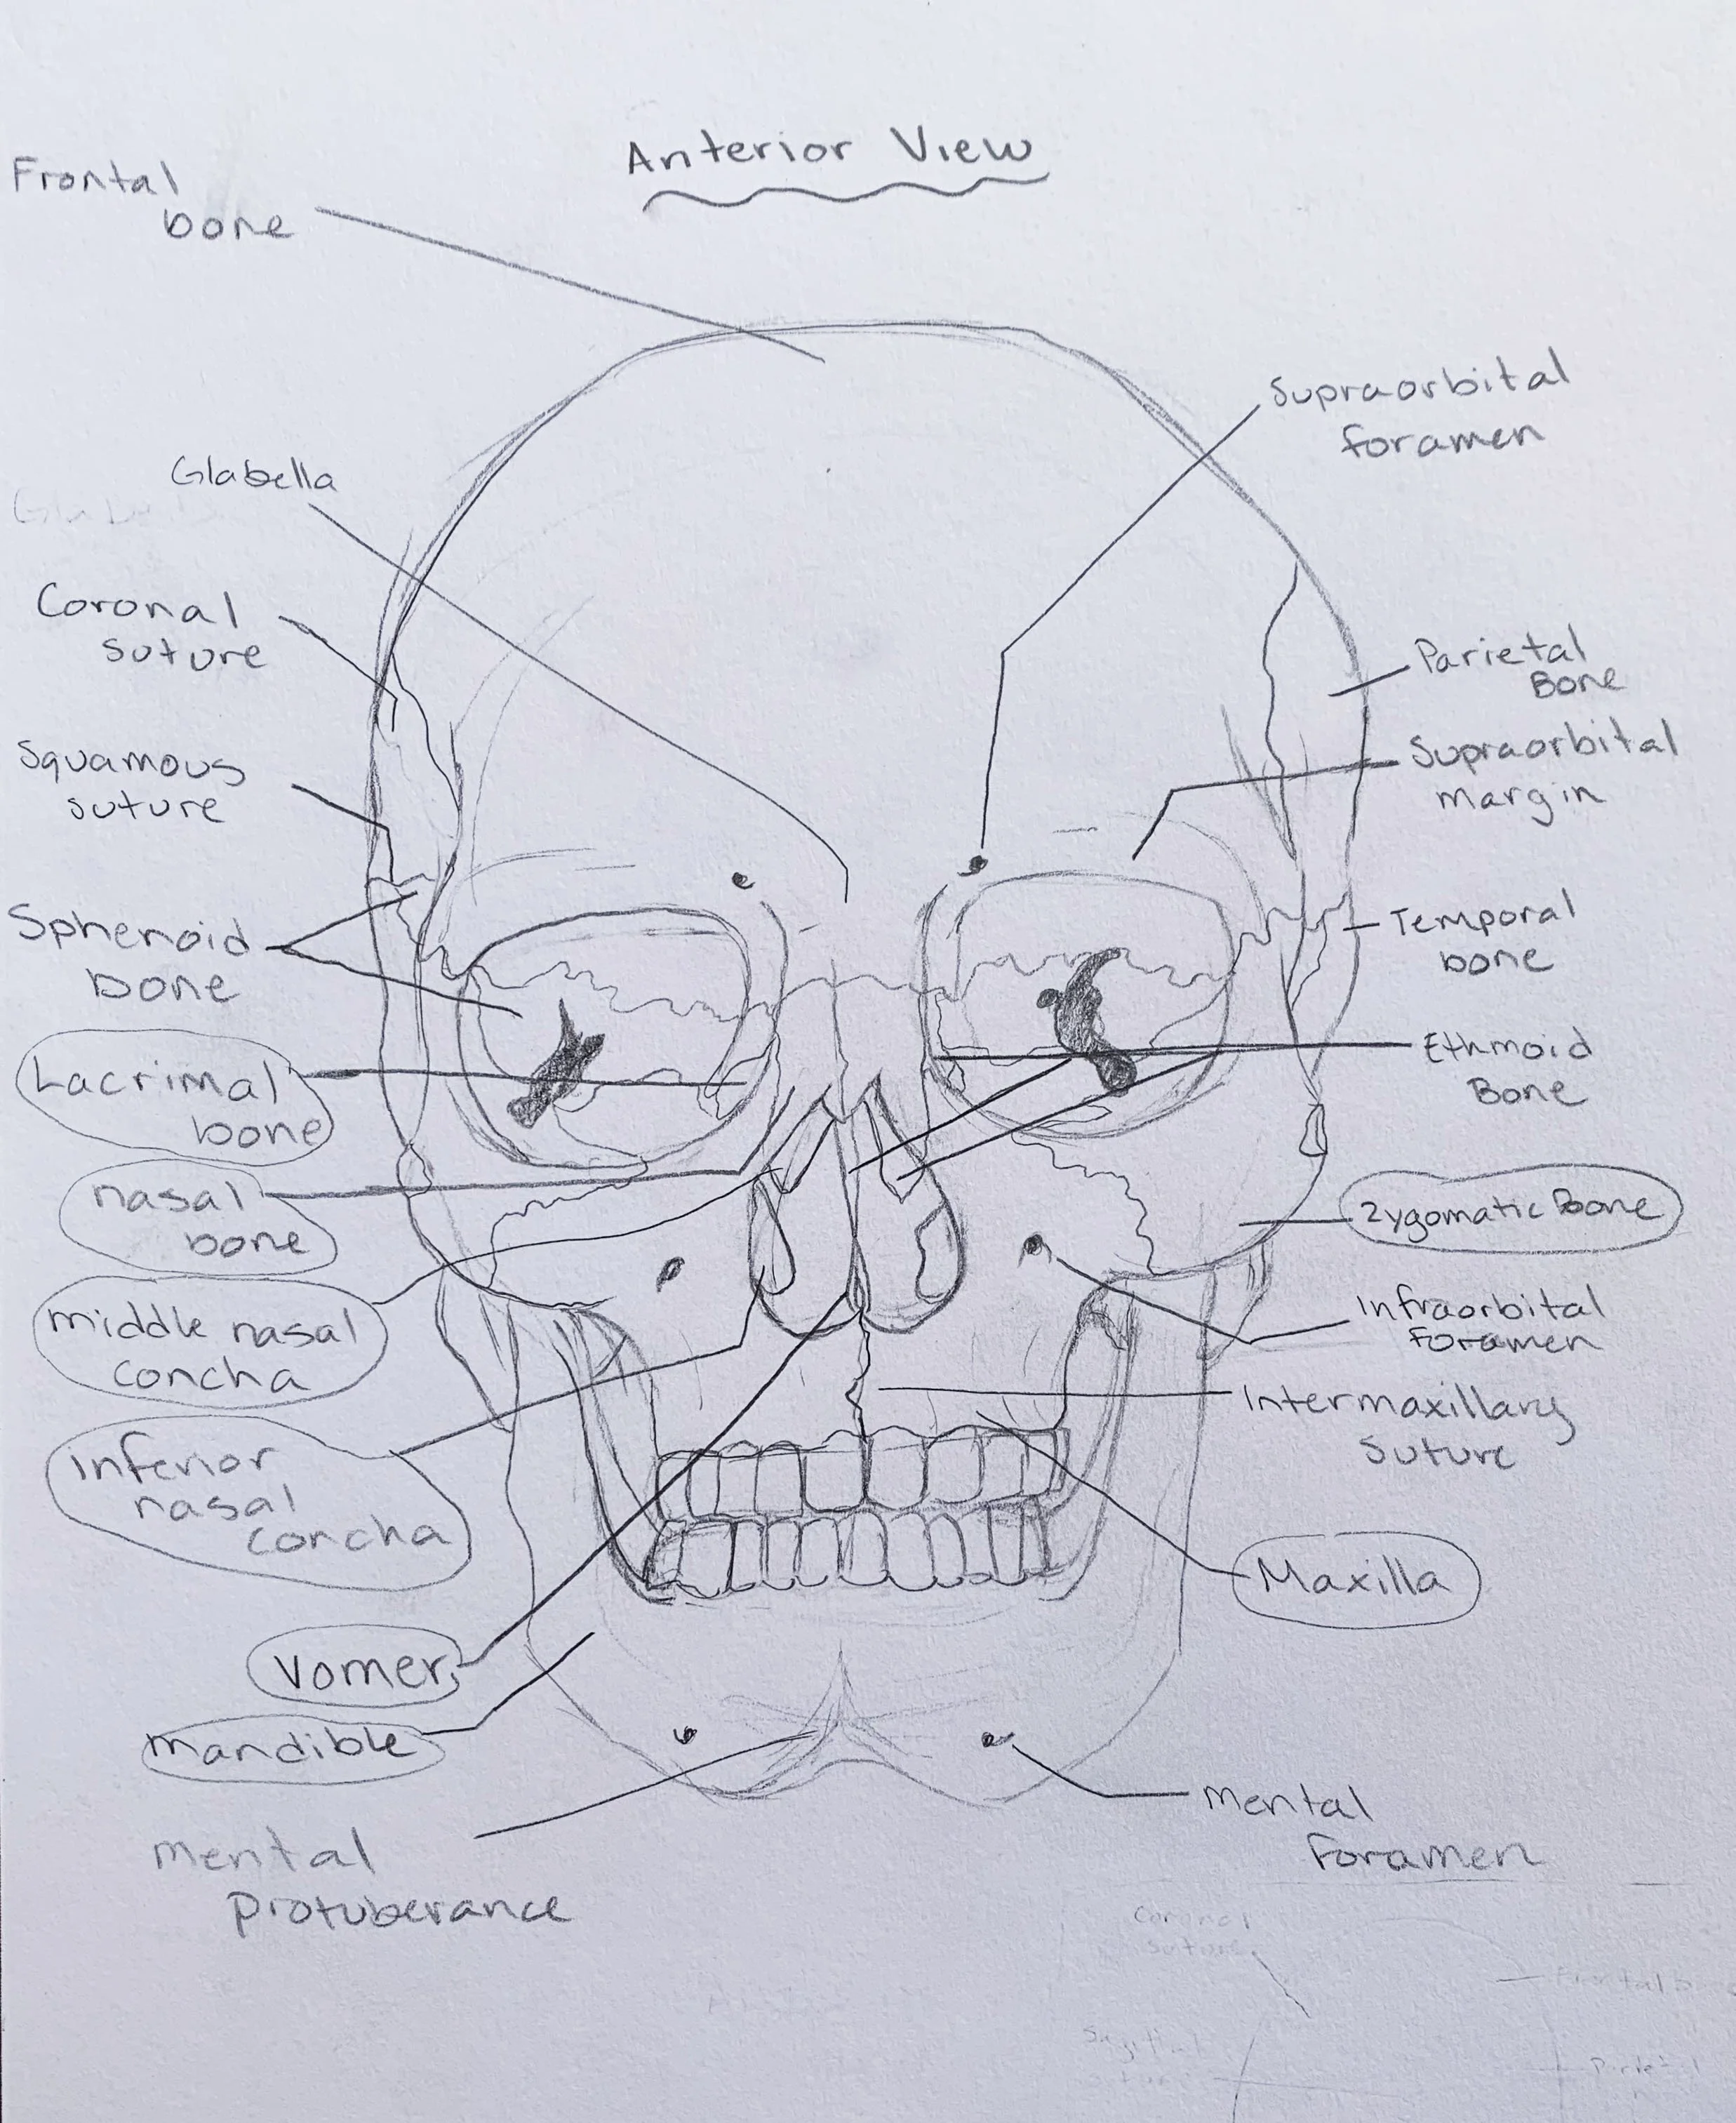 Anterior View
Frontal
bone
Supraorbital
foramen
Glabella
Coronal
suture
Parietal
Bone
Squamous
suture
Supraorbital
margin
Sphenoid
bone
Temporal
bone
Lacrimal
bone
Ethmoid
Bone
nasal
bone
Zygomatic Bone
middle nasal
concha
Infraorbital
Foramen
Intermaxillary
Suture
inferior
nasal
concha
Maxilla
Vomer
mandible
mental
Foramen
mental
protuberance
Coronal
suture
Frontal